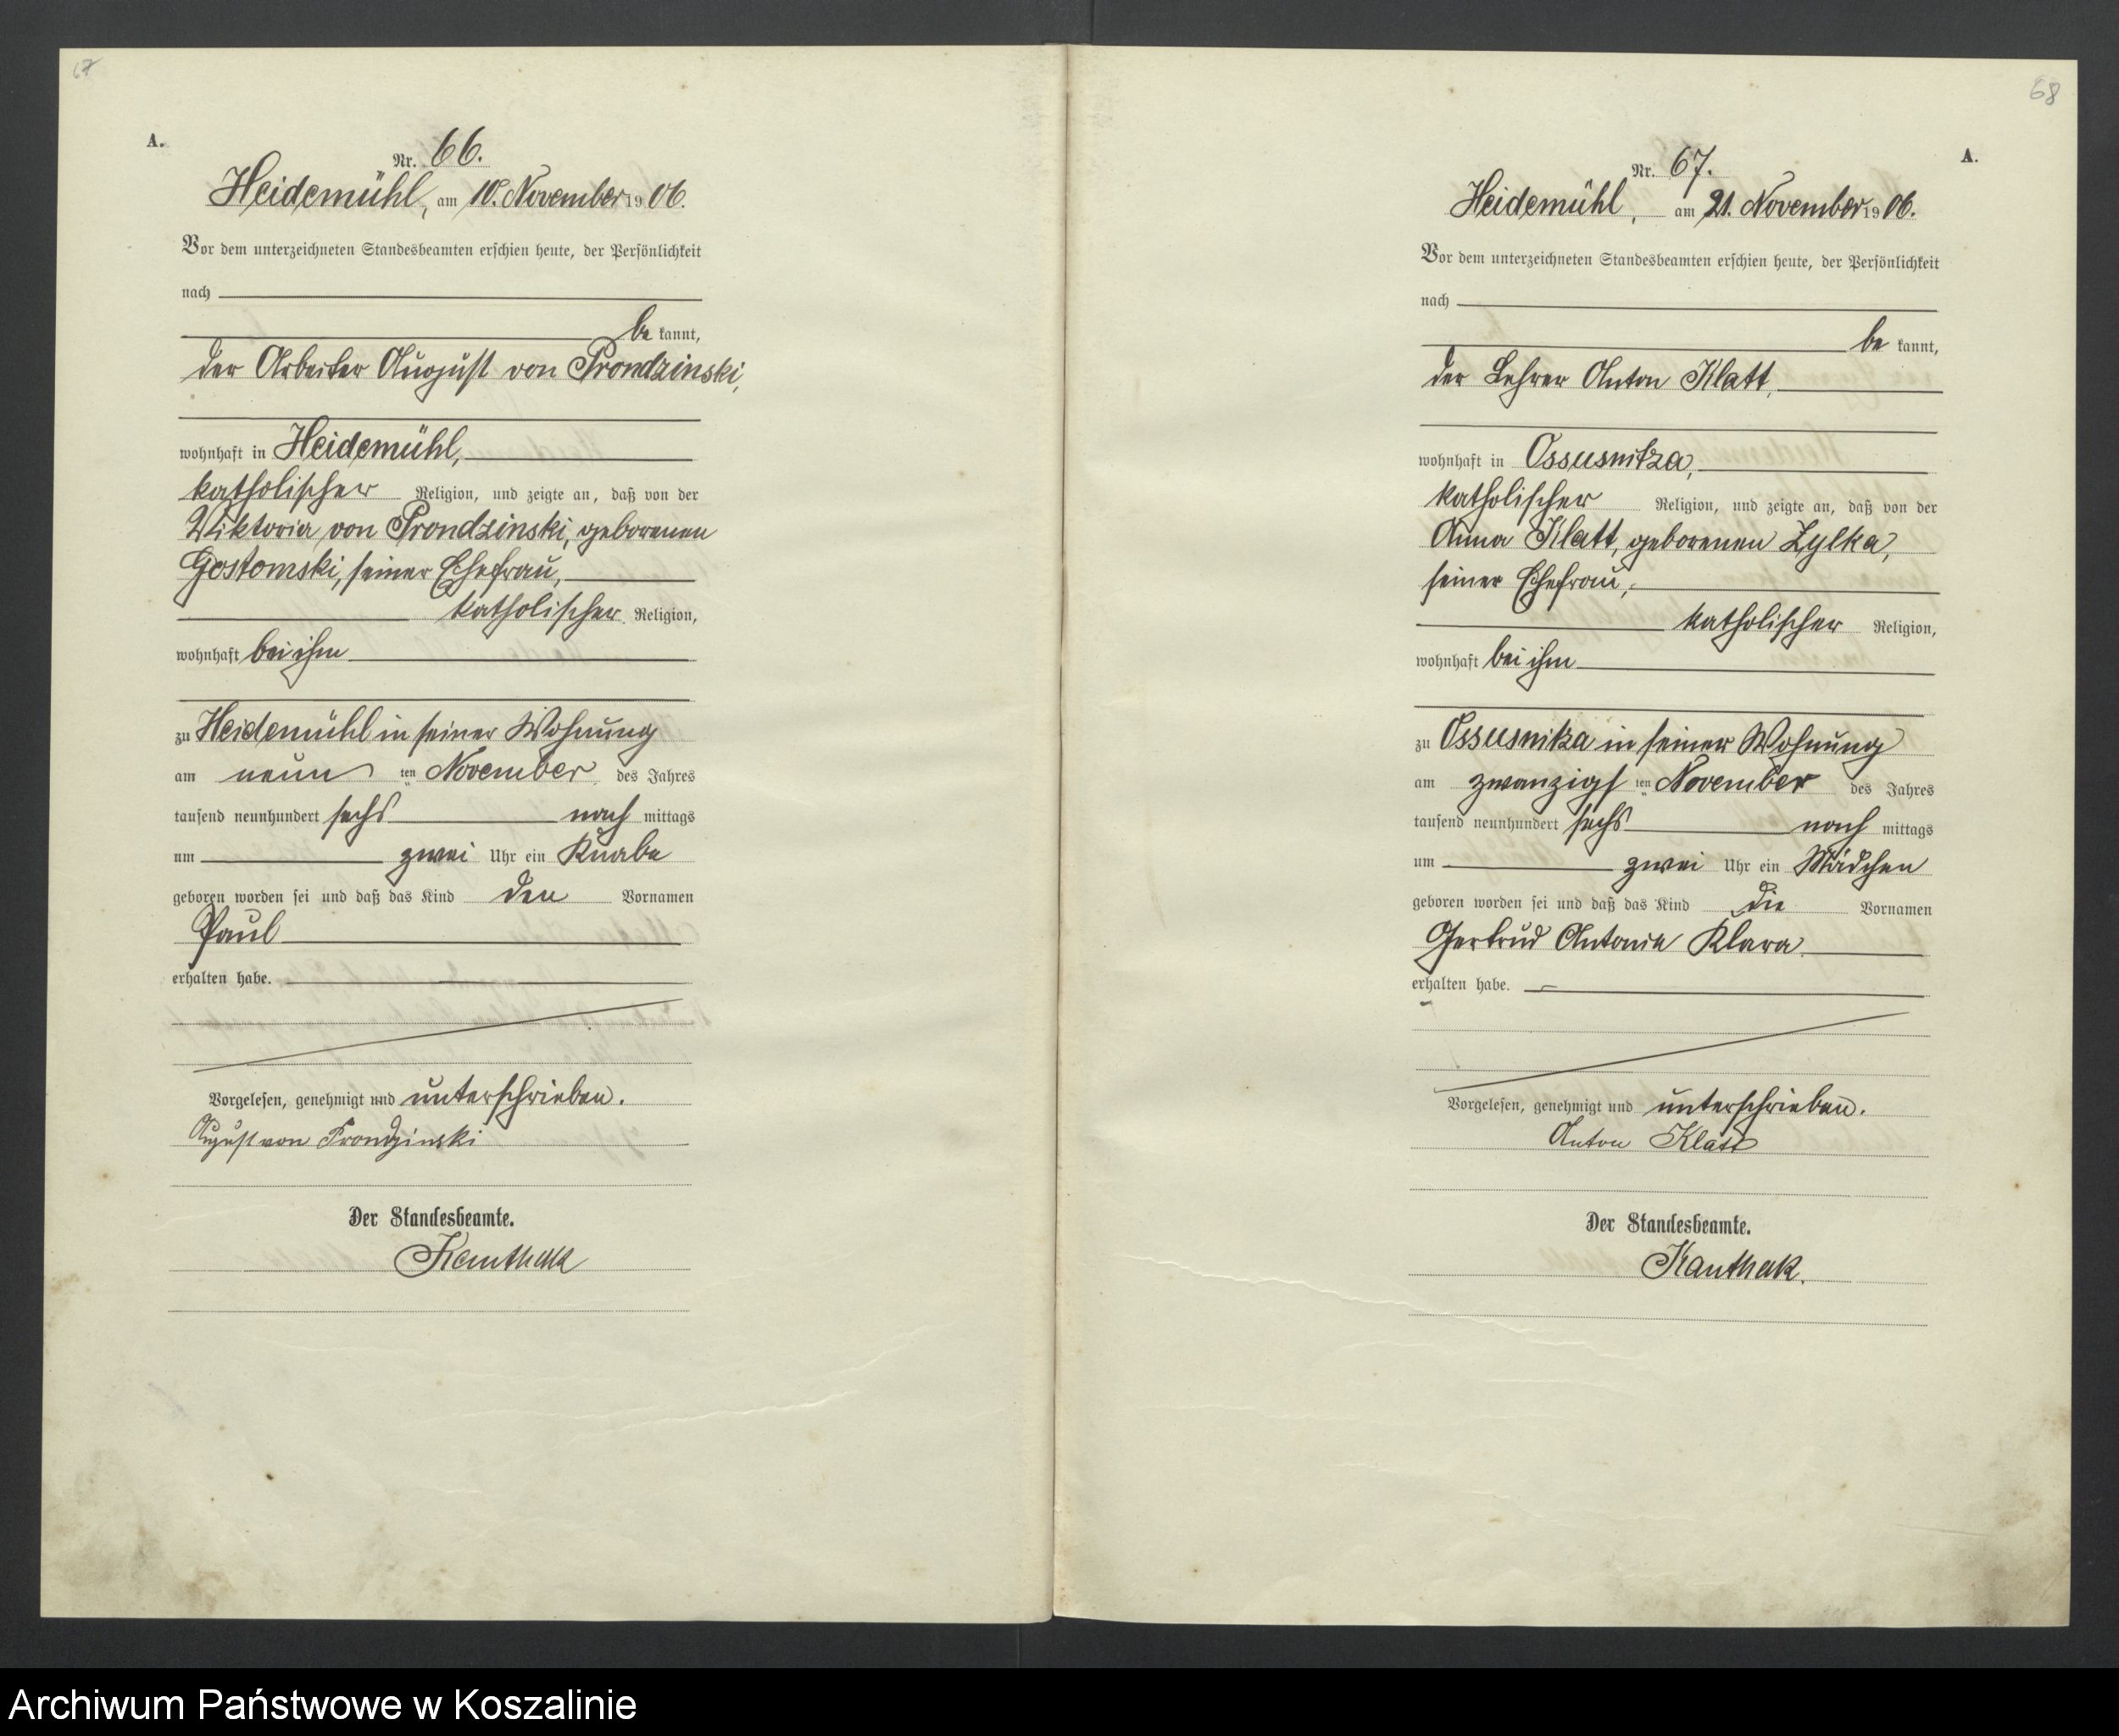 67
A.
Nr. 66.
Heidemühl, am 10. November 1906.
Vor dem unterzeichneten Standesbeamten erschien heute, der Persönlichkeit
nach
be kannt,
der Arbeiter August von Prondzinski,
wohnhaft in Heidemühl,
katholischer Religion, und zeigte an, daß von der
Viktoria von Prondzinski, geborenen
Gostomski, seiner Ehefrau,
katholischer Religion,
wohnhaft bei ihm
zu Heidemühl in seiner Wohnung
am neun ten November des Jahres
tausend neunhundert sechs nach mittags
um zwei Uhr ein Knabe
geboren worden sei und daß das Kind den Vornamen
Paul
erhalten habe.
Vorgelesen, genehmigt und unterschrieben.
August von Prondzinski
Der Standesbeamte.
Kanthak
68
A.
Nr. 67.
Heidemühl, am 21. November 1906.
Vor dem unterzeichneten Standesbeamten erschien heute, der Persönlichkeit
nach
be kannt,
der Lehrer Anton Klatt,
wohnhaft in Ossusnitza,
katholischer Religion, und zeigte an, daß von der
Anna Klatt, geborenen Zylka,
seiner Ehefrau,
katholischer Religion,
wohnhaft bei ihm
zu Ossusnitza in seiner Wohnung
am zwanzigs ten November des Jahres
tausend neunhundert sechs nach mittags
um zwei Uhr ein Mädchen
geboren worden sei und daß das Kind die Vornamen
Gertrud Antonie Klara
erhalten habe.
Vorgelesen, genehmigt und unterschrieben.
Anton Klatt
Der Standesbeamte.
Kanthak.
Archiwum Państwowe w Koszalinie